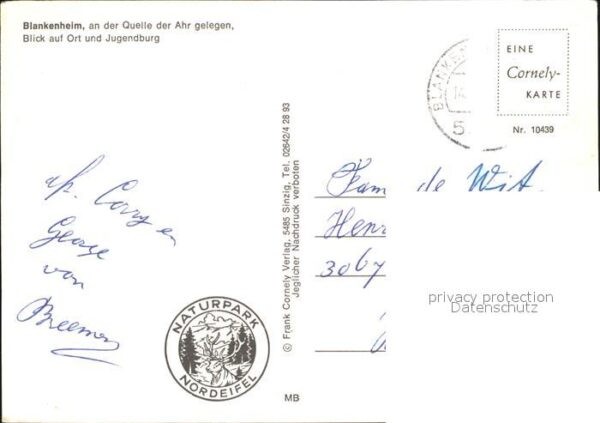 Blankenheim, an der Quelle der Ahr gelegen,
Blick auf Ort und Jugendburg
EINE
Cornely-
KARTE
Nr. 10439
BLANKEN
5
© Frank Cornely Verlag, 5485 Sinzig, Tel. 02642/4 28 93
Jeglicher Nachdruck verboten
afz. Corry en
George
van
Breemen
Fam de Wit
Henr
3067
privacy protection
Datenschutz
NATURPARK
NORDEIFEL
MB